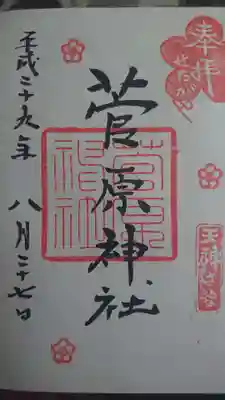 奉拝
せたがや
菅原神社
菅原
神社
平成二十九年 八月二十七日